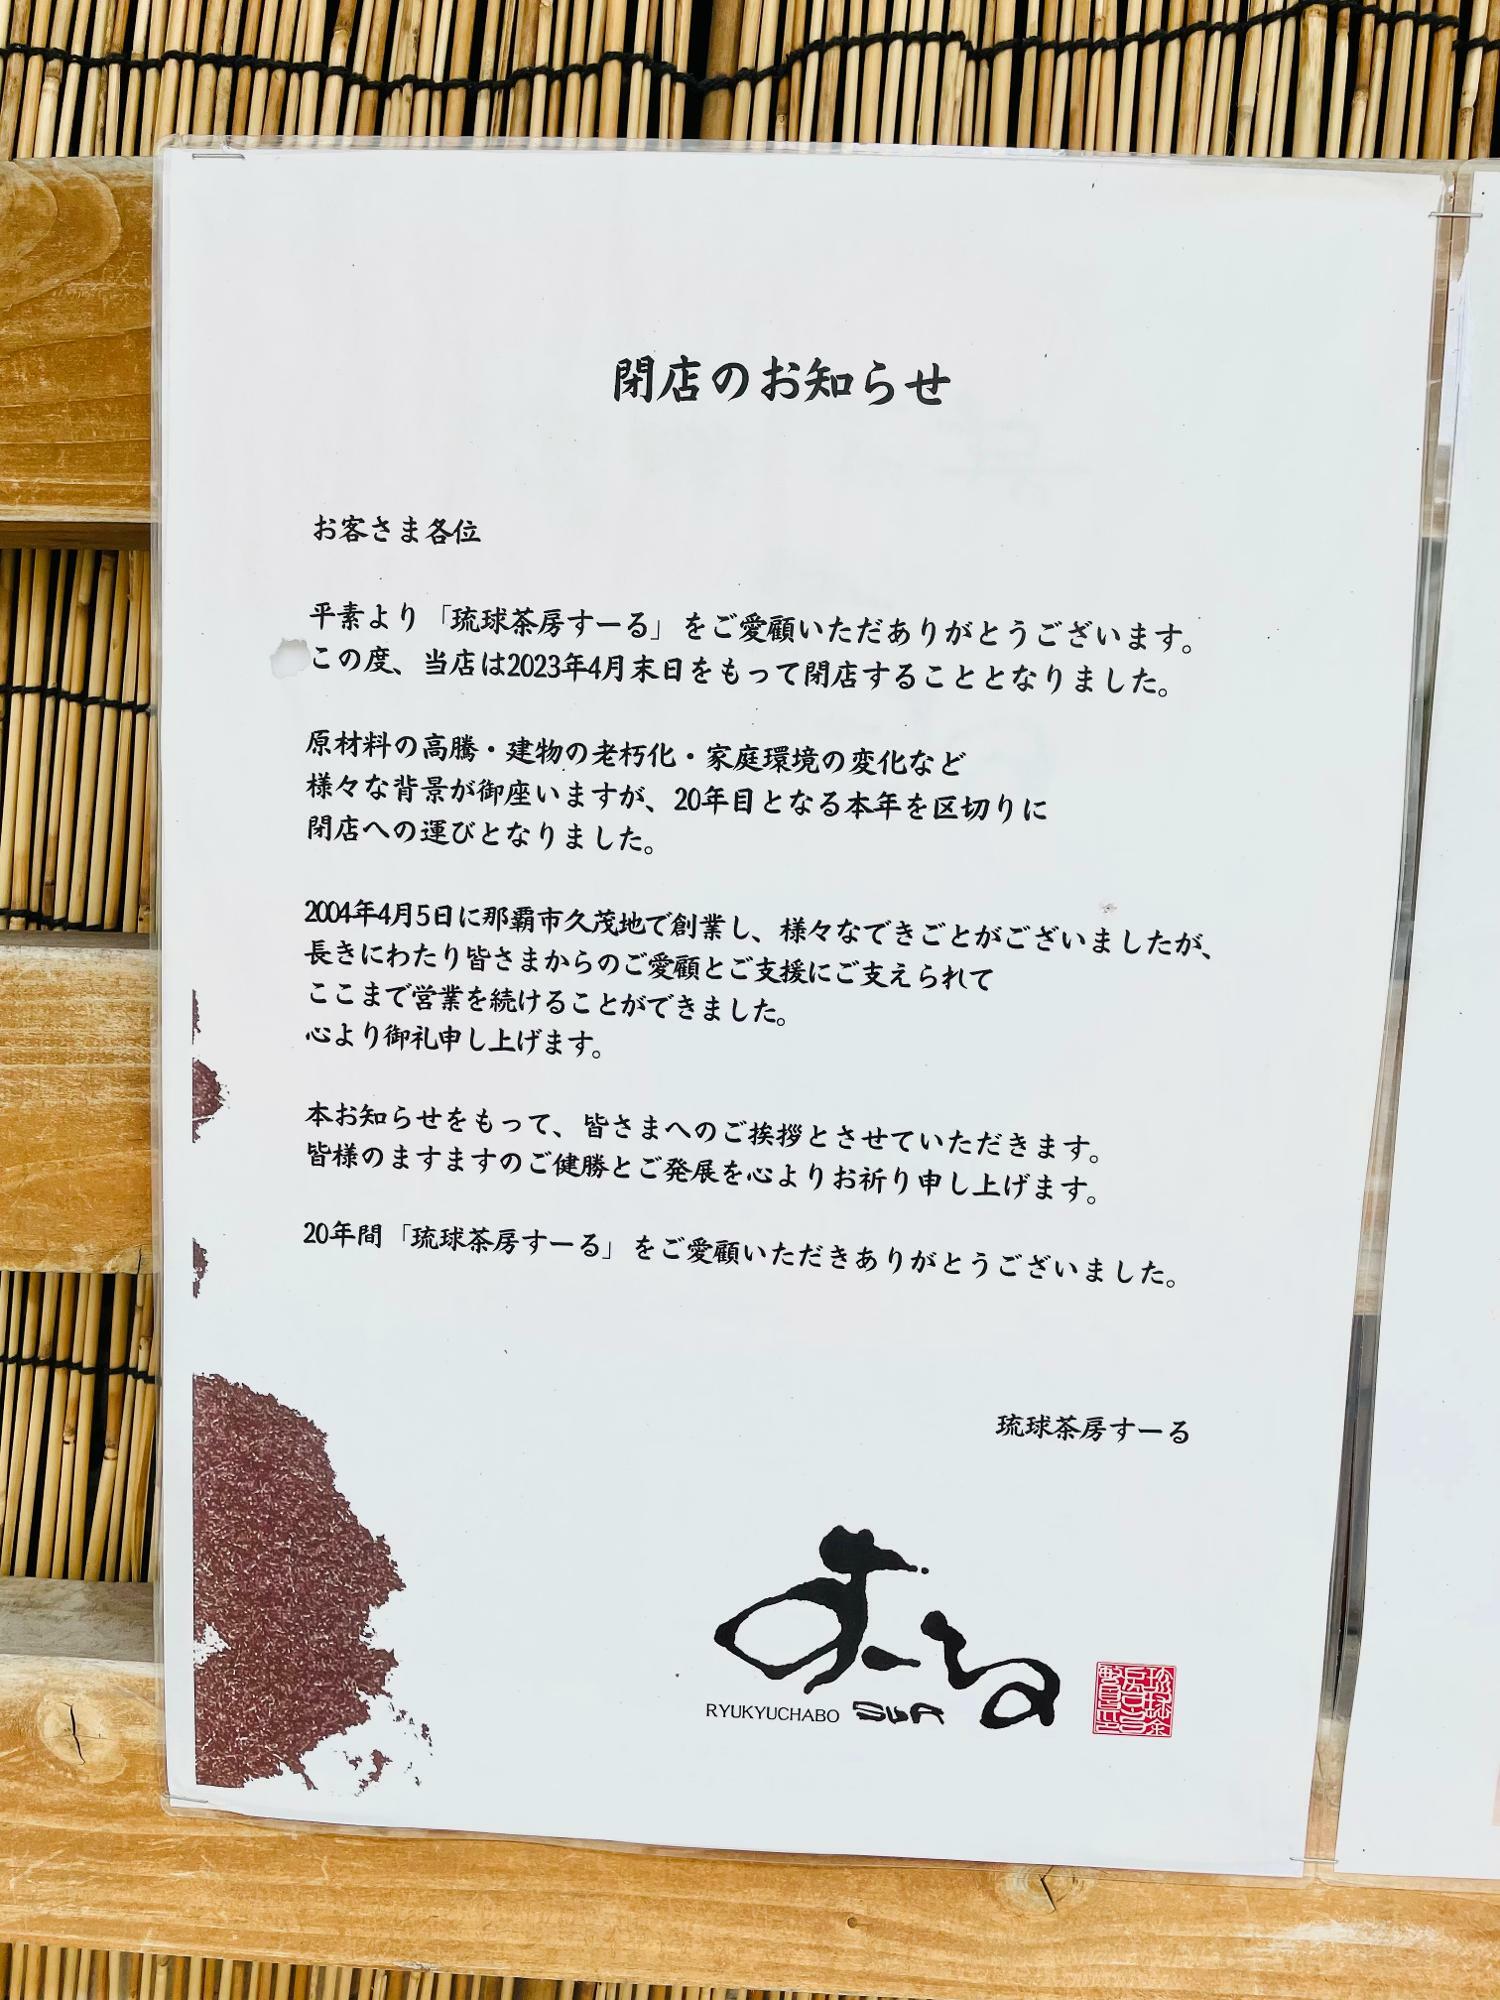 閉店のお知らせ
お客さま各位
平素より「琉球茶房すーる」をご愛顧いただありがとうございます。
この度、当店は2023年4月末日をもって閉店することとなりました。
原材料の高騰・建物の老朽化・家庭環境の変化など
様々な背景が御座いますが、20年目となる本年を区切りに
閉店への運びとなりました。
2004年4月5日に那覇市久茂地で創業し、様々なできごとがございましたが、
長きにわたり皆さまからのご愛顧とご支援にご支えられて
ここまで営業を続けることができました。
心より御礼申し上げます。
本お知らせをもって、皆さまへのご挨拶とさせていただきます。
皆様のますますのご健勝とご発展を心よりお祈り申し上げます。
20年間「琉球茶房すーる」をご愛顧いただきありがとうございました。
琉球茶房すーる
すーる
RYUKYUCHABO SUR